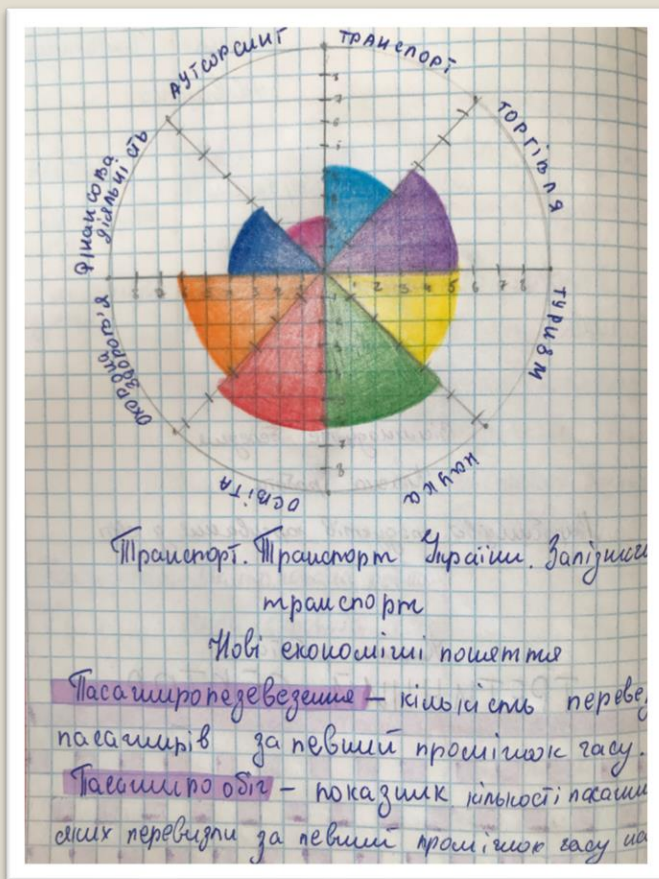 АУТСОРСИНГ
ТРАНСПОРТ
ТОРГІВЛЯ
ТУРИЗМ
НАУКА
ОСВІТА
ОХОРОНА ЗДОРОВ'Я
ФІНАНСОВА ДІЯЛЬНІСТЬ
Транспорт. Транспорт України. Залізнич
транспорт
Нові економічні поняття
Пасажироперевезення – кількість переве
пасажирів за певний проміжок часу.
Пасажирообіг – показник кількості пасажи
яких перевезли за певний проміжок часу на